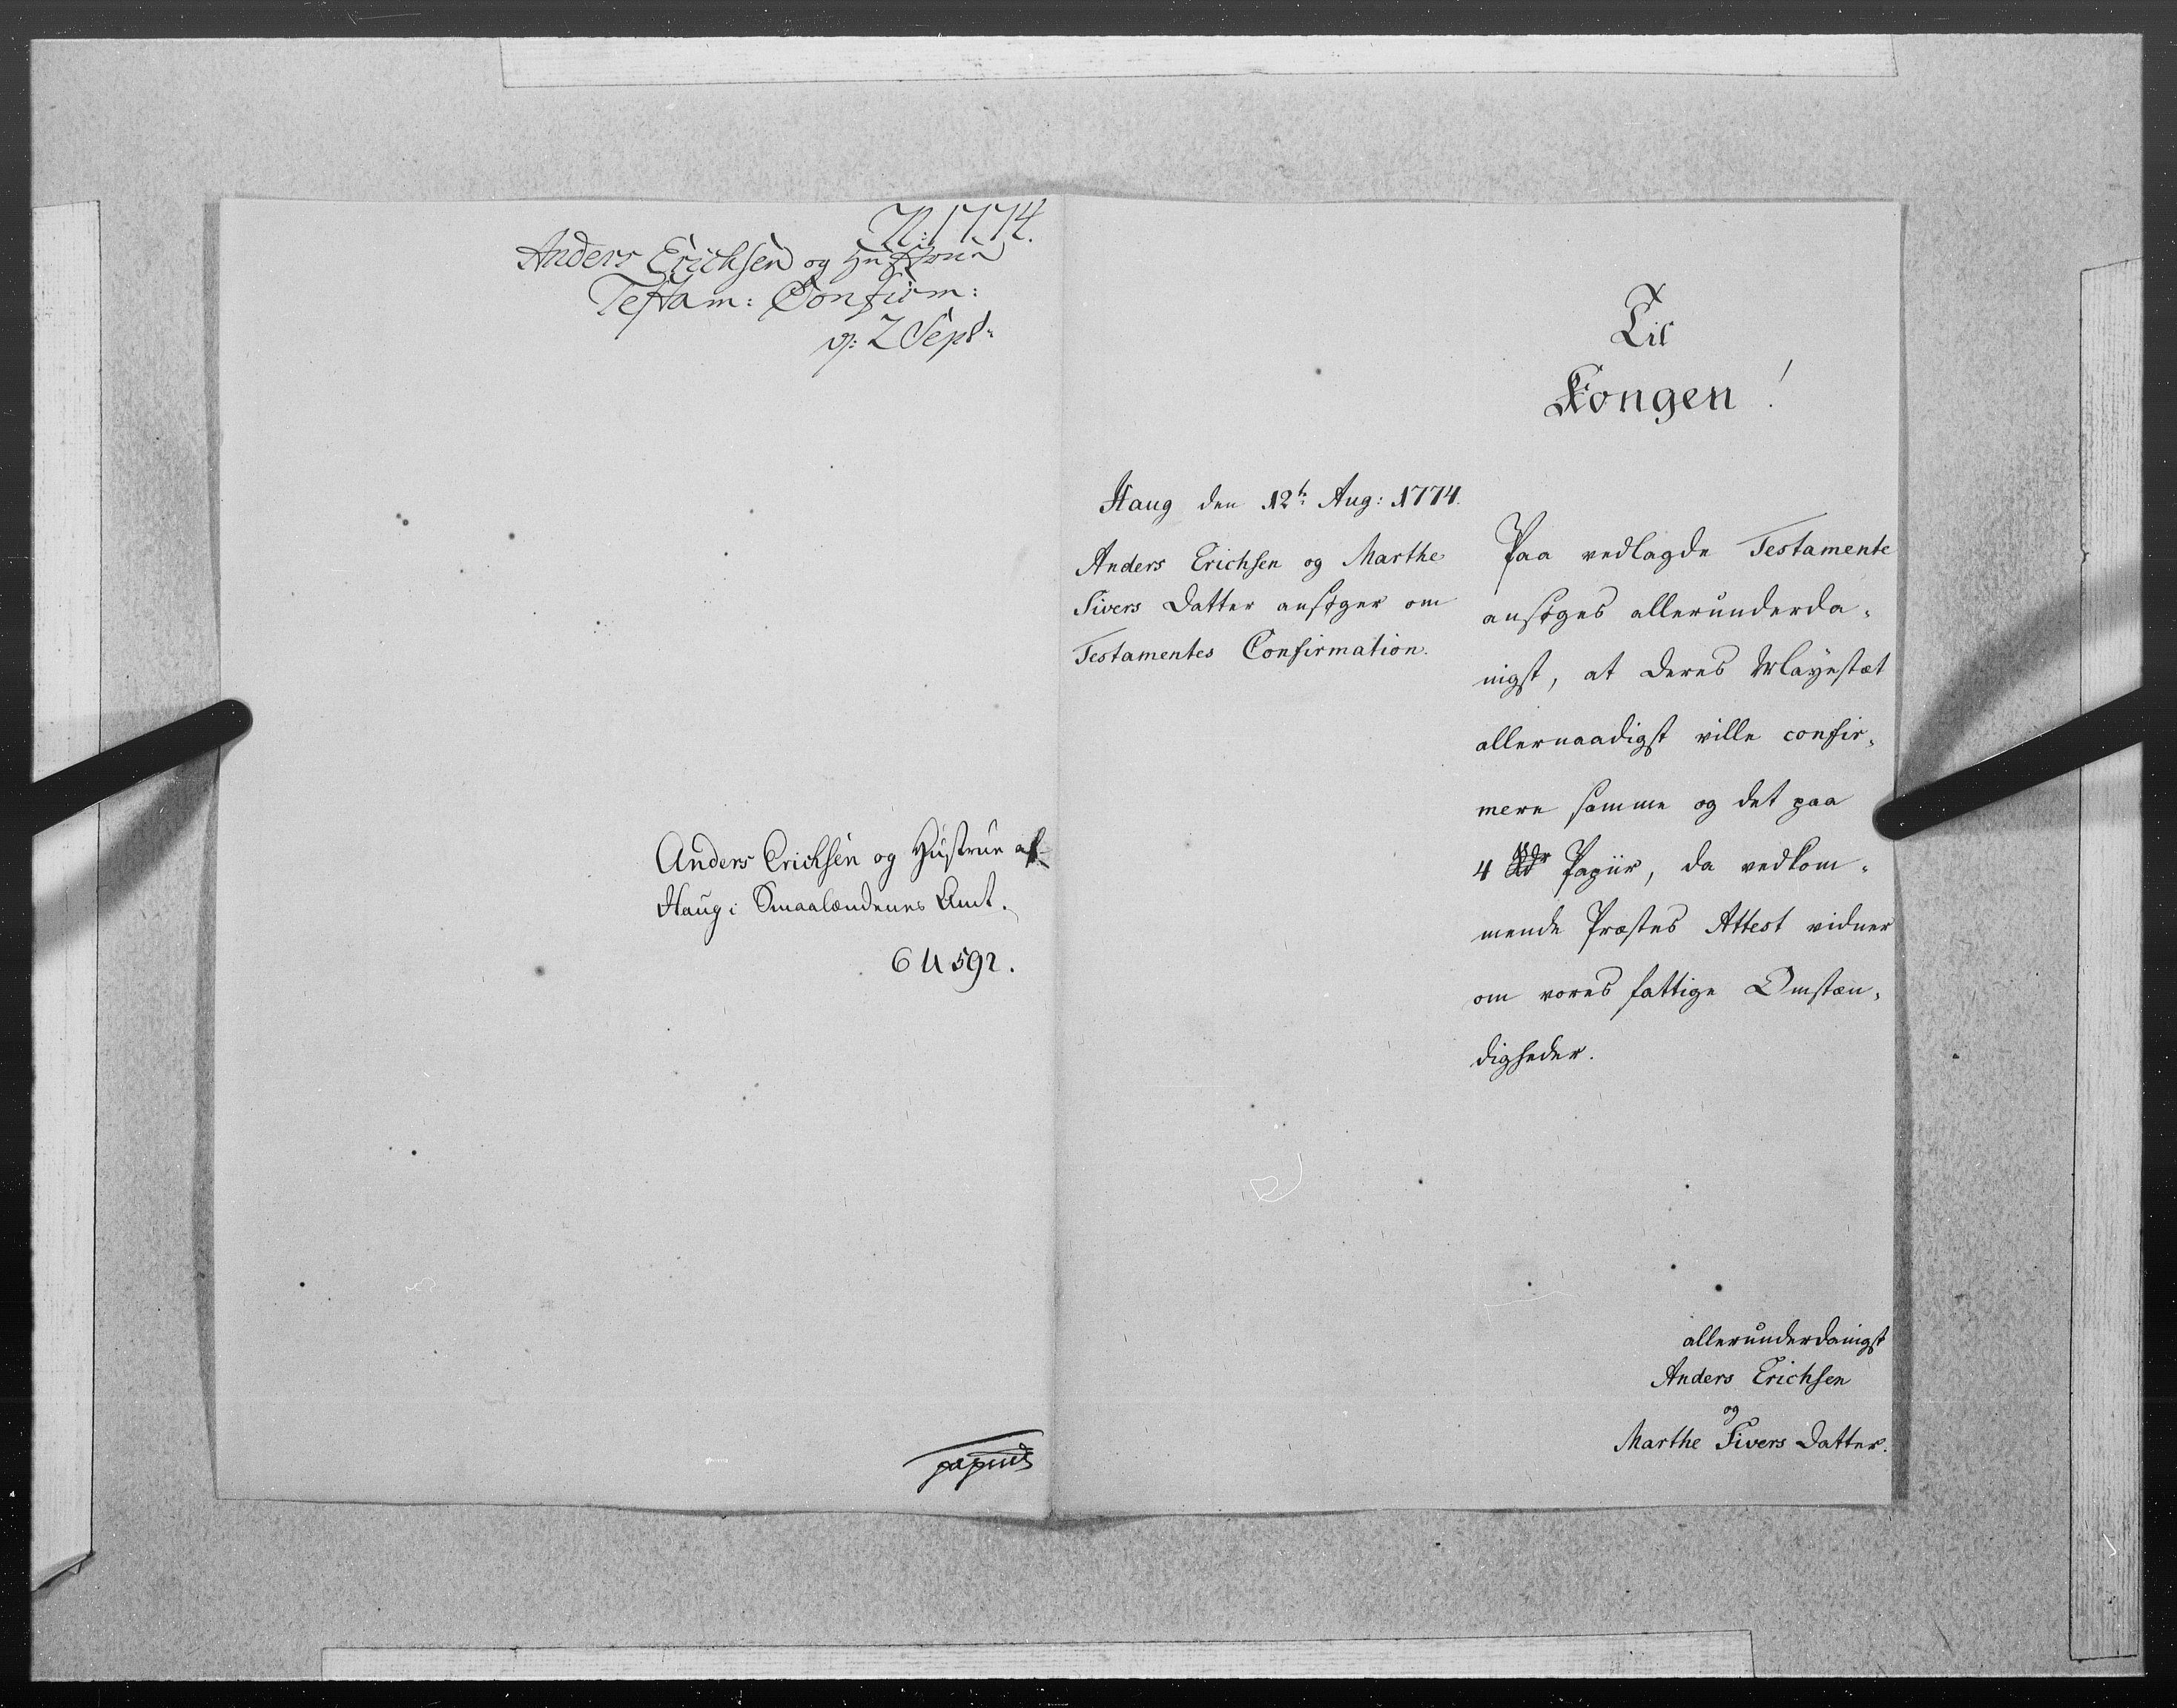 N: 1774.
Anders Erichsen og Hustrue
Testam: Confirm:
g: 2 Sept:
Anders Erichsen og Hustrue af
Haug i Smaalændenes Amt.
6 U 592.
Til
Kongen!
Haug den 12te Aug: 1774.
Anders Erichsen og Marthe
Sivers Datter ansøger om
Testamentes Confirmation.
Paa vedlagde Testamente
ansøges allerunderda-
nigst, at Deres Mayestæt
allernaadigst ville confir-
mere samme og det paa
4 Papiir, da vedkom-
mende Præstes Attest vidner
om vores fattige Omstæn-
digheder.
allerunderdanigst
Anders Erichsen
og
Marthe Sivers Datter.